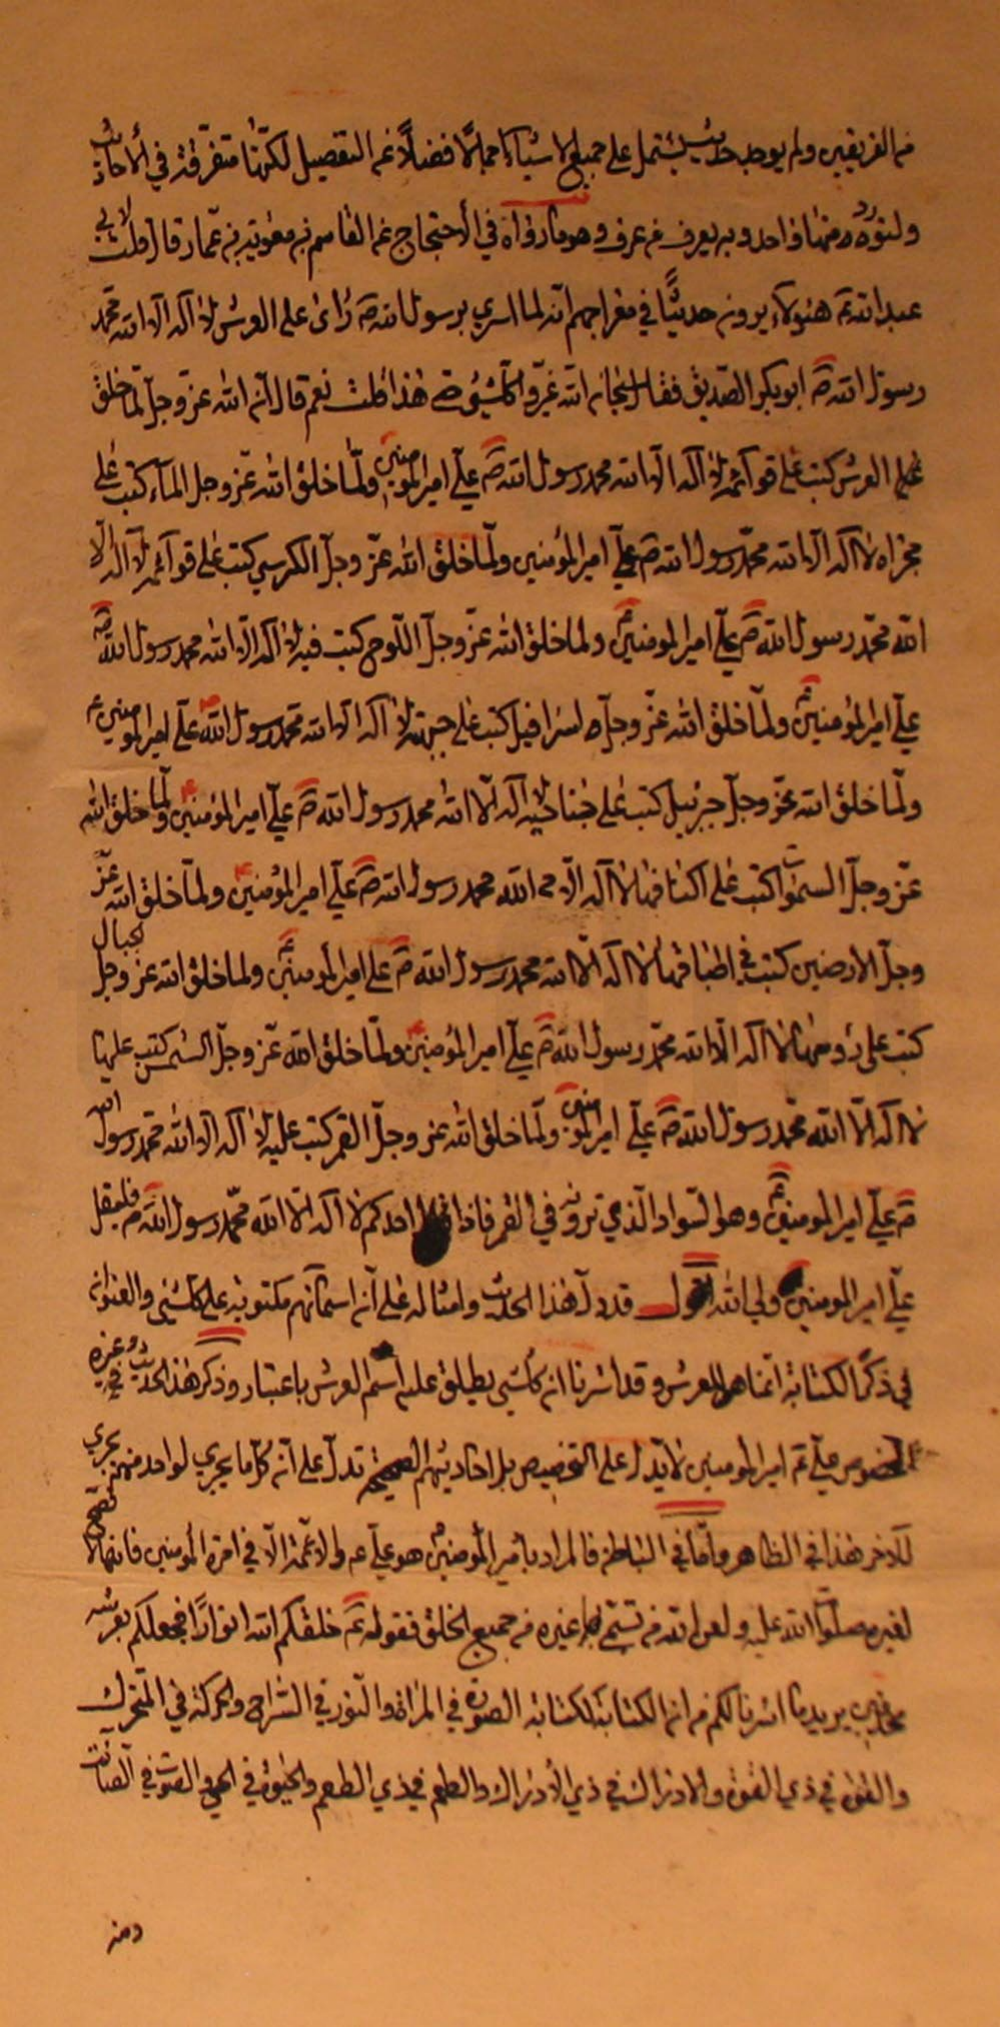 من الفريقين ولم يوجد حديث يشتمل على جميع الاشياء اجمالا فضلاً عن التفصيل لكنها متفرقة في الأحاديث
ولنورد منها واحد وبه يعرف من عرف وهو مارواه في الأحتجاج عن القاسم بن معوية بن عمار قال قلت لابي
عبد الله ع هؤلاء يروون حديثًا في معراجهم انه لما اسري برسول الله ص رأى على العرش لا اله الا الله محمد
رسول الله ص ابو بكر الصديق فقال سبحان الله غيروا كل شيء حتى هذا قلت نعم قال ان الله عز وجل لما خلق
العرش كتب على قوآئمه لا اله الا الله محمد رسول الله ص علي امير المومنين ولما خلق الله عز وجل المآء كتب على
مجراه لا اله الا الله محمد رسول الله ص علي امير المؤمنين ولما خلق الله عز وجل الكرسي كتب على قوآئمه لا اله الا
الله محمد رسول الله ص علي امير المومنين ع ولما خلق الله عز وجل اللوح كتب فيه لا اله الا الله محمد رسول الله ص
علي امير المؤمنين ع ولما خلق الله عز وجل اسرافيل كتب على جبهته لا اله الا الله محمد رسول الله ص علي امير المومنين ع
ولما خلق الله عز وجل جبرئيل كتب على جناحيه لا اله الا الله محمد رسول الله ص علي امير المؤمنين ع ولما خلق الله
عز وجل السموات كتب على اكنافها لا اله الا الله محمد رسول الله ص علي امير المؤمنين ع ولما خلق الله عز
وجل الارضين كتب في اطباقها لا اله الا الله محمد رسول الله ص علي امير المومنين ع ولما خلق الله عز وجل الجبال
كتب على رؤسها لا اله الا الله محمد رسول الله ص علي امير المؤمنين ع ولما خلق الله عز وجل الشمس كتب عليها
لا اله الا الله محمد رسول الله ص علي امير المومنين ولما خلق الله عز وجل القمر كتب عليه لا اله الا الله محمد رسول الله
ص علي امير المومنين ع وهو السواد الذي ترونه في القمر فاذا قال احدكم لا اله الا الله محمد رسول الله ص فليقل
علي امير المومنين ولي الله اقول قد دل هذا الحديث وامثاله على ان اسمآئهم مكتوبة على كل شيء والعنوان
في ذكر الكتابة انما هو العرش وقد اشرنا ان كل شيء يطلق عليه اسم العرش باعتبار وذكر هذا الحديث وغيره في
الخصوص علي ع امير المومنين لا يدل على التخصيص بل احاديثهم الصحيحة تدل على ان كل ما يجري لواحد منهم يجري
للآخر هذا في الظاهر واما في الباطن فالمراد بامير المؤمنين هو علي ع والائمة الا في امرة المؤمنين فانها لا تصح
لغيره صلوات الله عليه ولعن الله من تسمى بها غيره من جميع الخلق فقوله ع خلقكم الله انوارًا فجعلكم بعرشه
محدقين يريد ما اشرنا لكم من ان الكتابة ككتابة الصورة في المرآة والنور في السراج والحركة في المتحرك
والقوة في ذي القوة والادراك في ذي الأدراك والطعم في ذي الطعم والحيوة في الحي والصوت في الصائت
ومن